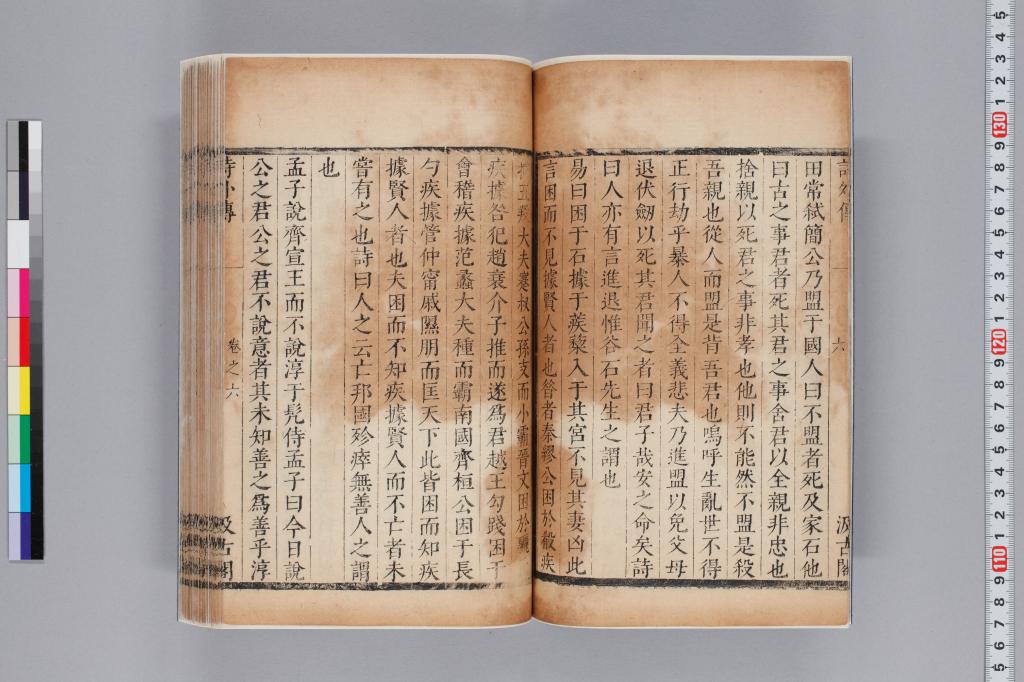 詩外傳
六
汲古閣
田常弑簡公乃盟于國人曰不盟者死及家石他
曰古之事君者死其君之事舍君以全親非忠也
捨親以死君之事非孝也他則不能然不盟是殺
吾親也從人而盟是背吾君也嗚呼生亂世不得
正行劫乎暴人不得全義悲夫乃進盟以免父母
退伏劒以死其君聞之者曰君子哉安之命矣詩
曰人亦有言進退惟谷石先生之謂也
易曰困于石據于蒺藜入于其宮不見其妻凶此
言困而不見據賢人者也昝者秦繆公困於殽疾
據五羖大夫蹇叔公孫支而小霸晉文困於驪
疾據咎犯趙衰介子推而遂爲君越王勾踐困于
會稽疾據范蠡大夫種而霸南國齊桓公困于長
勺疾據管仲甯戚隰朋而匡天下此皆困而知疾
據賢人者也夫困而不知疾據賢人而不亡者未
嘗有之也詩曰人之云亡邦國殄瘁無善人之謂
也
孟子說齊宣王而不說淳于髠侍孟子曰今日說
公之君公之君不說意者其未知善之爲善乎淳
詩外傳
卷之六
汲古閣
5
4
3
2
1
130
9
8
7
6
5
4
3
2
1
120
9
8
7
6
5
4
3
2
1
110
9
8
7
6
5